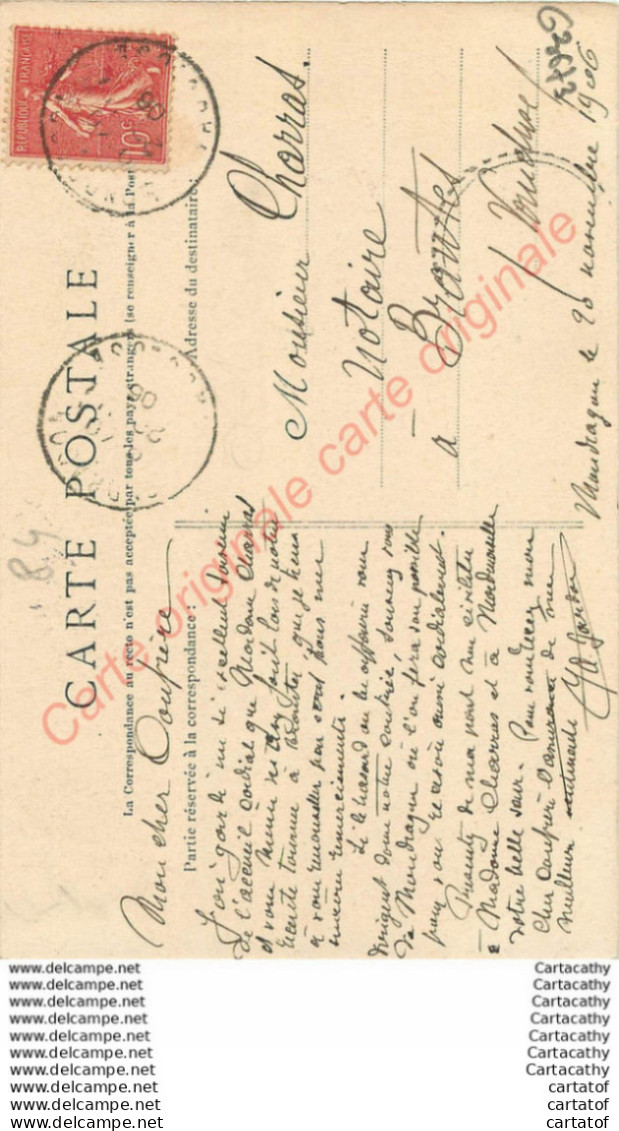 CARTE POSTALE
La Correspondance au recto n'est pas acceptée par tous les pays étrangers (se renseigner à la Poste)
Partie réservée à la correspondance :
Adresse du destinataire :
RÉPUBLIQUE FRANÇAISE
84
Mon cher Confrère
J'en garde un si excellent souvenir
de l'accueil cordial que Madame Charras
et vous m'avez fait lors de notre
récente tournée à Brantes que je tiens
à vous renouveler par carte tous mes
sincères remerciements.
Si le hasard ou les affaires vous
dirigent dans notre contrée, souvenez vous
de Mondragon où l'on fera son possible
pour vous recevoir aussi cordialement.
Présentez de ma part mes civilités
à Madame Charras et à Mademoiselle
votre belle sœur. Pour vous
cher Confrère l'assurance de mes
meilleurs
Monsieur Charras
Notaire
à Brantes
Vaucluse
Mondragon le 26 novembre 1906
Carte originale carte originale
www.delcampe.net
www.delcampe.net
www.delcampe.net
www.delcampe.net
www.delcampe.net
www.delcampe.net
www.delcampe.net
www.delcampe.net
www.delcampe.net
www.delcampe.net
Cartacathy
Cartacathy
Cartacathy
Cartacathy
Cartacathy
Cartacathy
Cartacathy
cartatof
cartatof
cartatof